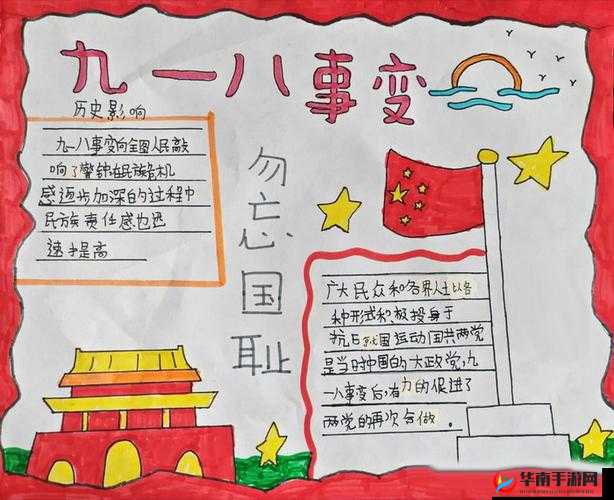 九一八事变
历史影响
九一八事变向全国人民敲
响了警钟在民族危机
感逐步加深的过程中
民族责任感也迅
速提高
勿忘国耻
广大民众和各界人士以各
种形式积极投身于
抗日救国运动国共两党
是当时中国的大政党,九
一八事变后,有力的促进了
两党的再次合做.
华南手游网